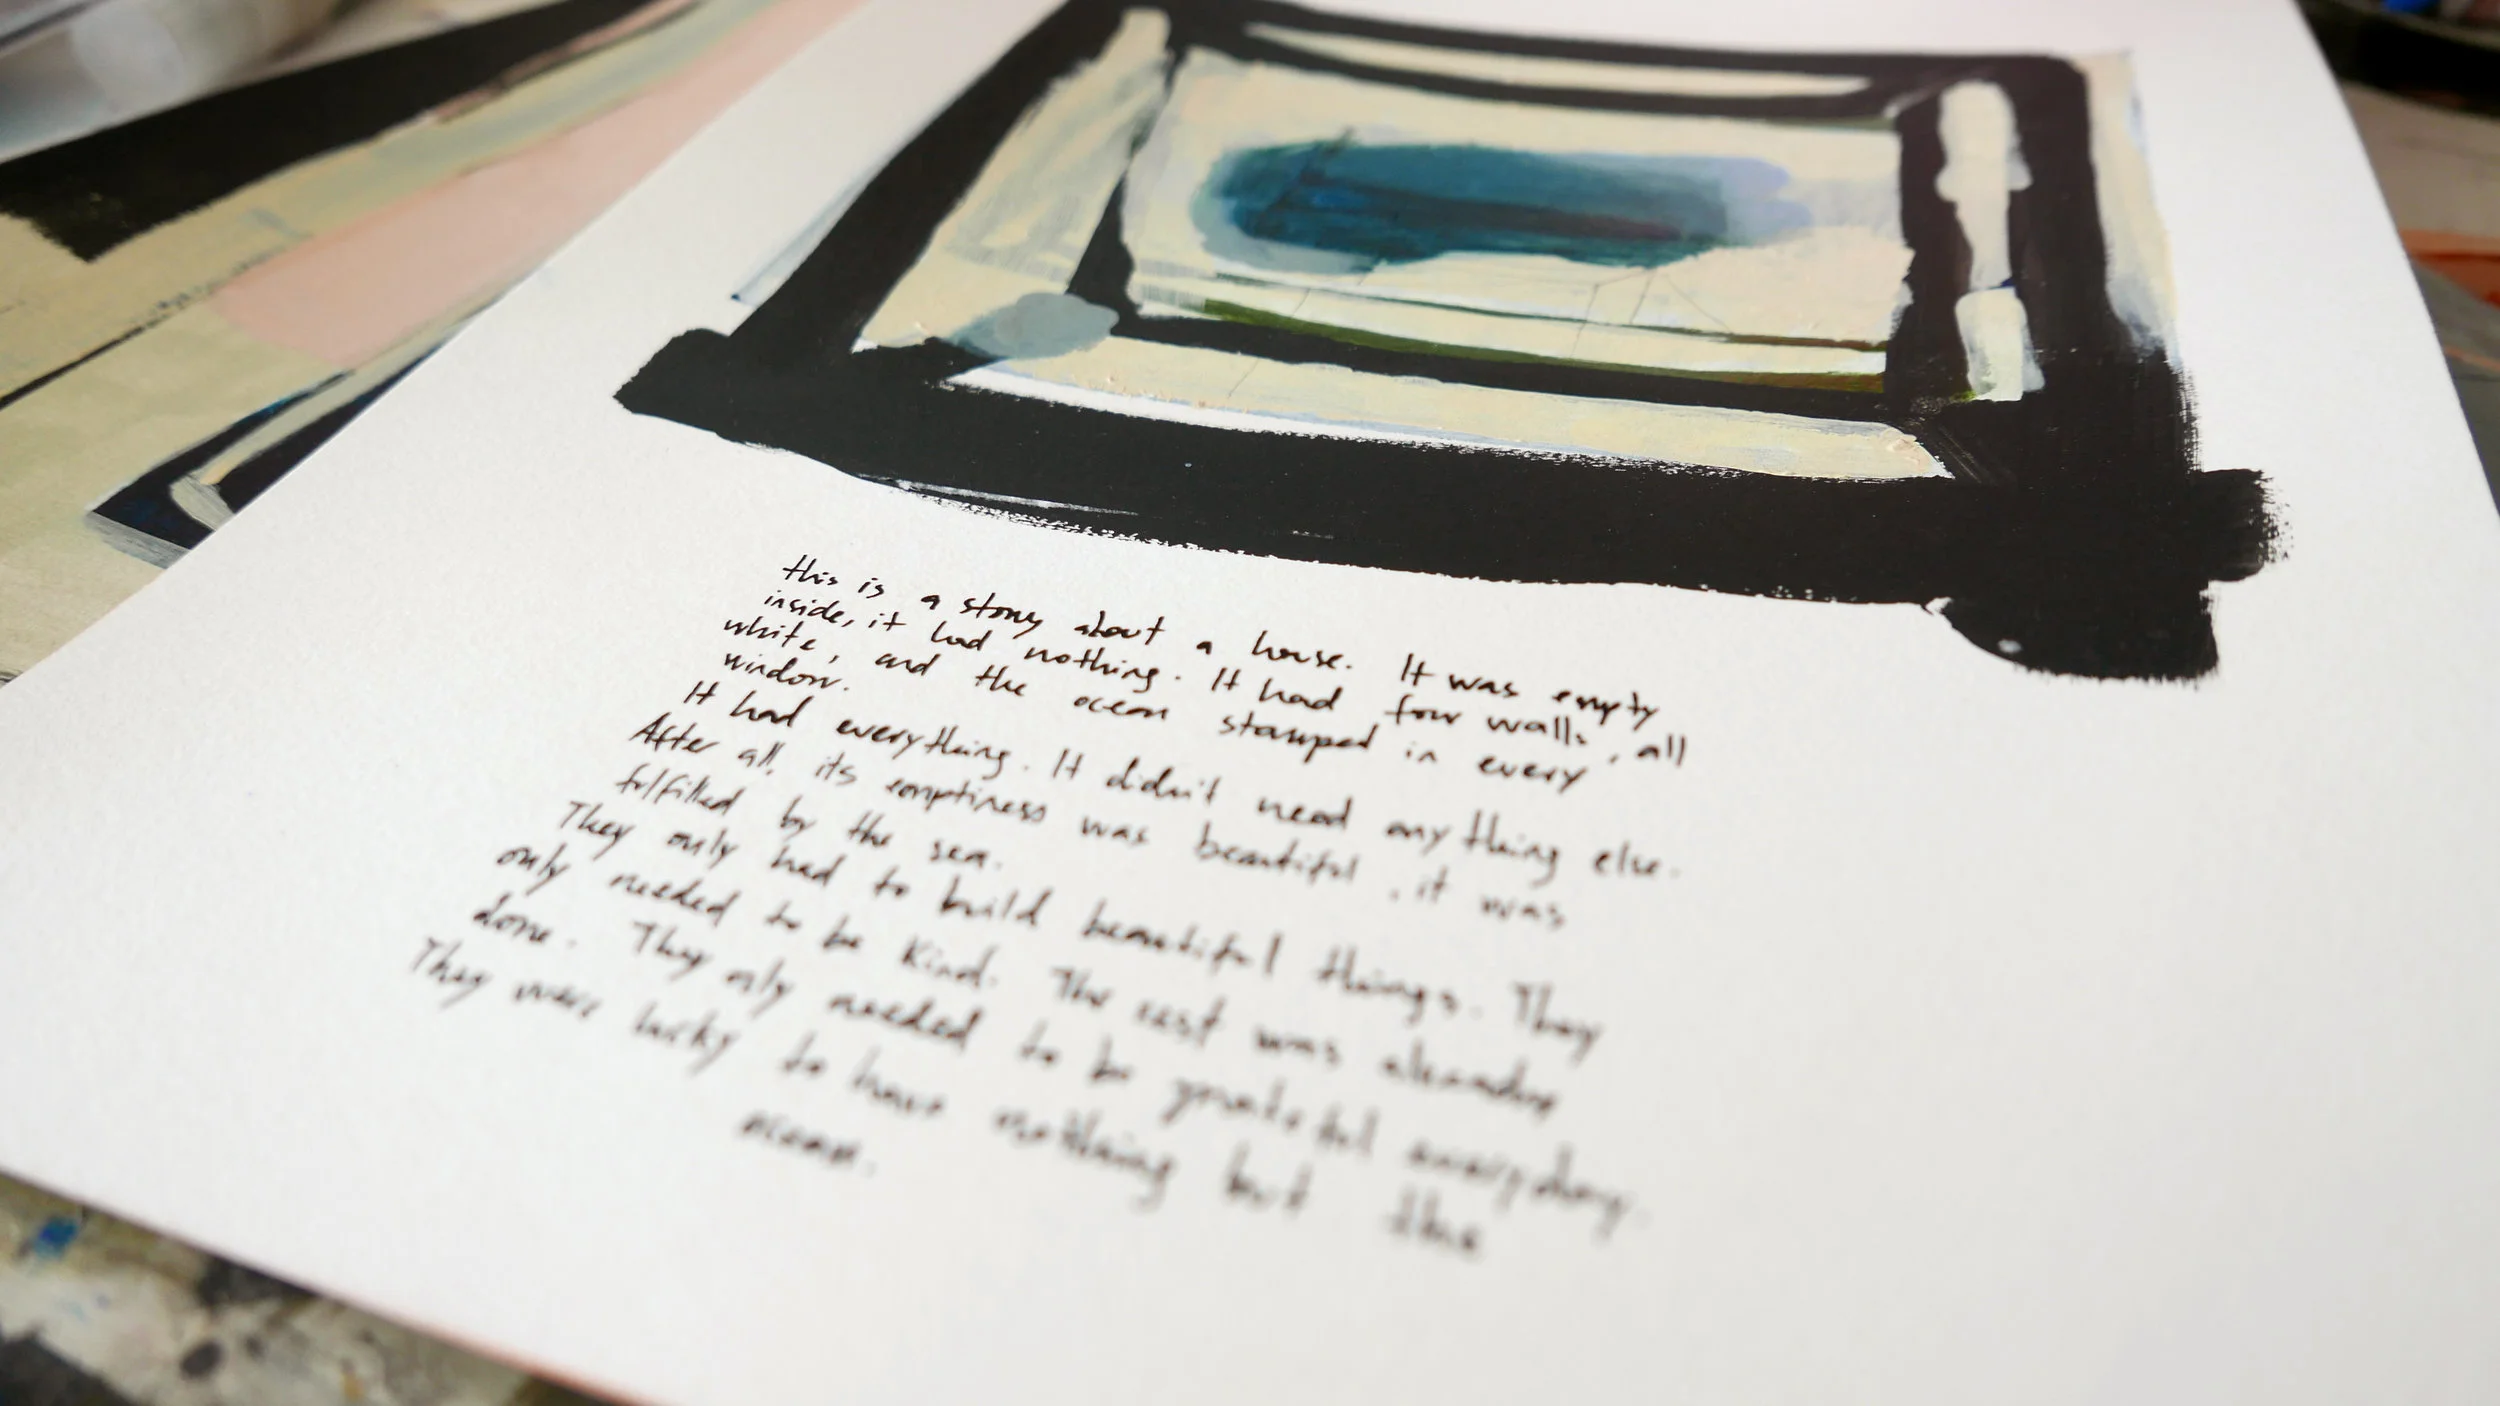 this is a story about a house. It was empty
inside, it had nothing. It had four walls, all
white, and the ocean stamped in every
window.
It had everything. It didn't need anything else.
After all, its emptiness was beautiful, it was
fulfilled by the sea.
They only had to build beautiful things. They
only needed to be kind. The rest was already
done. They only needed to be grateful everyday.
They were lucky to have nothing but the
ocean.